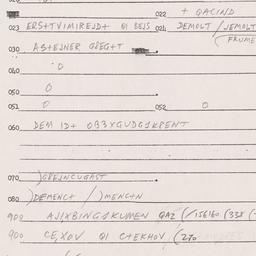 022 + QACIND
023 ERS+TVIMIREJD+ QI BEJS 024 DEMOLT / JEMOLT
(FRUME
030 AS+EJNER GREG+T
040 0
050 0
051 0 052 0
060 DEM ID+ OB3XGUDGSKRENT
070 )GREJNCUGAST
080 )DEMENC+ / )MENC+N
900 AJIXBINGSKUMEN QAZ (/156160 (338 (-
900 CE,XOV QI C+EKHOV (270